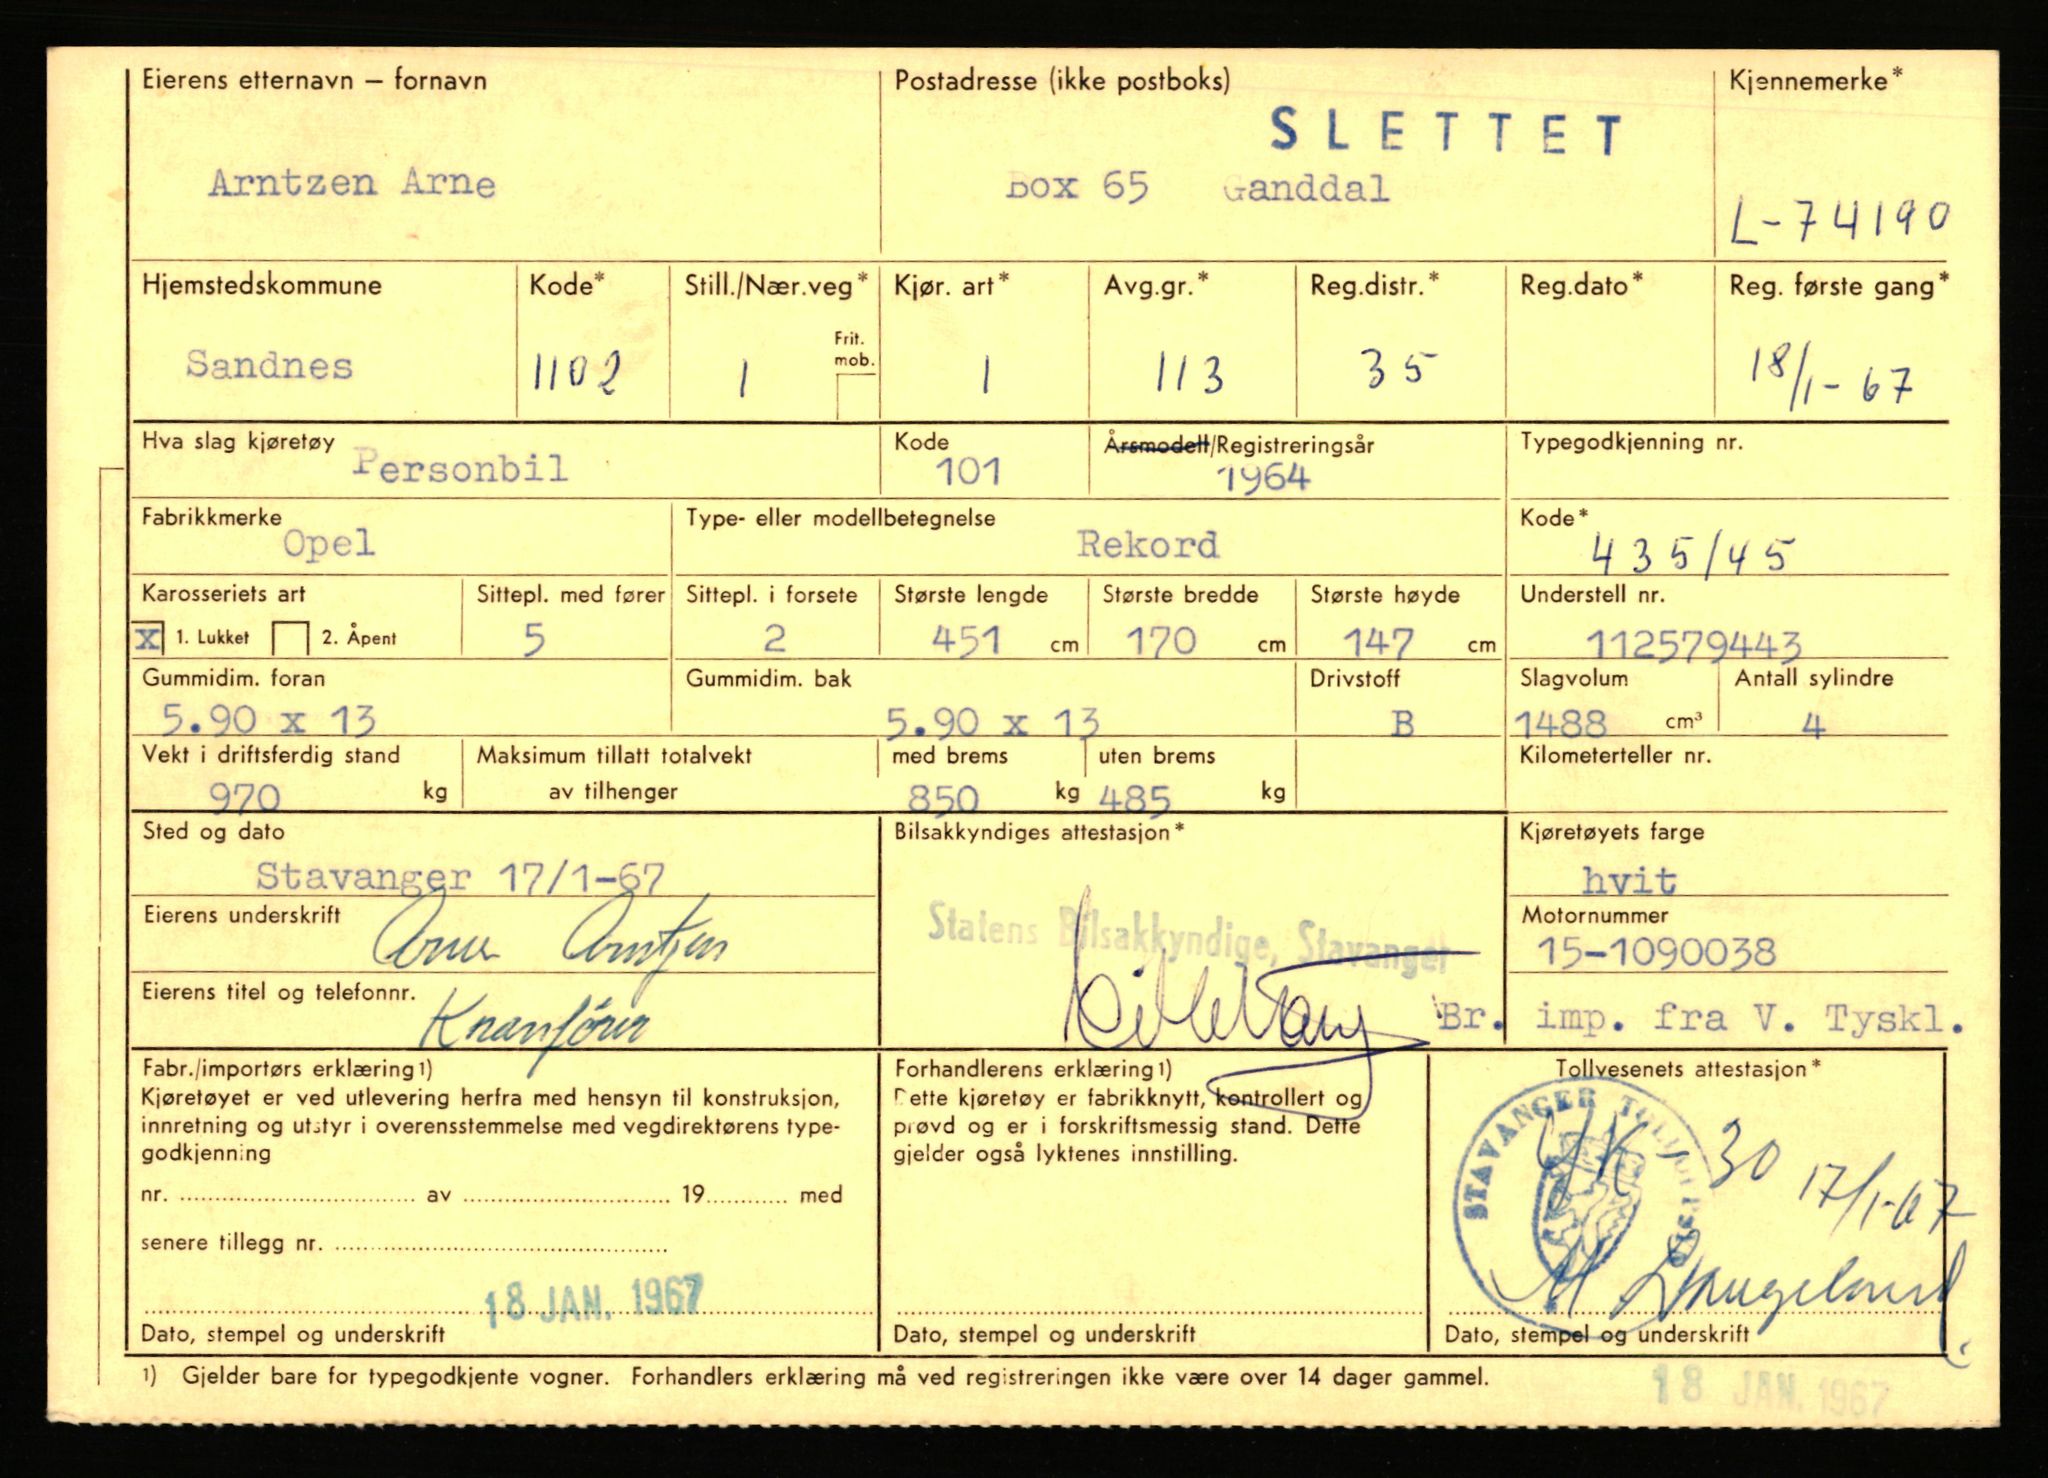 Eierens etternavn – fornavn
Postadresse (ikke postboks)
Kjennemerke*
SLETTET
Arntzen Arne
Box 65 Ganddal
L-74190
Hjemstedskommune
Kode*
Still./Nær.veg*
Kjør. art*
Avg.gr.*
Reg.distr.*
Reg.dato*
Reg. første gang*
Frit. mob.
Sandnes
1102
1
1
113
35
18/1-67
Hva slag kjøretøy
Personbil
Kode
101
Årsmodell/Registreringsår
1964
Typegodkjenning nr.
Fabrikkmerke
Opel
Type- eller modellbetegnelse
Rekord
Kode*
435/45
Karosseriets art
Sittepl. med fører
Sittepl. i forsete
Største lengde
Største bredde
Største høyde
Understell nr.
x 1. Lukket 2. Åpent
5
2
451 cm
170 cm
147 cm
112579443
Gummidim. foran
Gummidim. bak
Drivstoff
Slagvolum
Antall sylindre
5.90 x 13
5.90 x 13
B
1488 cm³
4
Vekt i driftsferdig stand
Maksimum tillatt totalvekt
med brems
uten brems
Kilometerteller nr.
970 kg
av tilhenger
850 kg
485 kg
Sted og dato
Bilsakkyndiges attestasjon*
Kjøretøyets farge
Stavanger 17/1-67
hvit
Eierens underskrift
Arne Arntzen
Statens Bilsakkyndige, Stavanger
Motornummer
15-1090038
Eierens titel og telefonnr.
Kranfører
Br. imp. fra V. Tyskl.
Fabr./importørs erklæring1)
Kjøretøyet er ved utlevering herfra med hensyn til konstruksjon,
innretning og utstyr i overensstemmelse med vegdirektørens type-
godkjenning
nr. av 19 med
senere tillegg nr.
18 JAN. 1967
Dato, stempel og underskrift
Forhandlerens erklæring1)
Dette kjøretøy er fabrikknytt, kontrollert og
prøvd og er i forskriftsmessig stand. Dette
gjelder også lyktenes innstilling.
Dato, stempel og underskrift
Tollvesenets attestasjon*
STAVANGER
30 17/1-67
Dato, stempel og underskrift
1) Gjelder bare for typegodkjente vogner. Forhandlers erklæring må ved registreringen ikke være over 14 dager gammel.
18 JAN. 1967